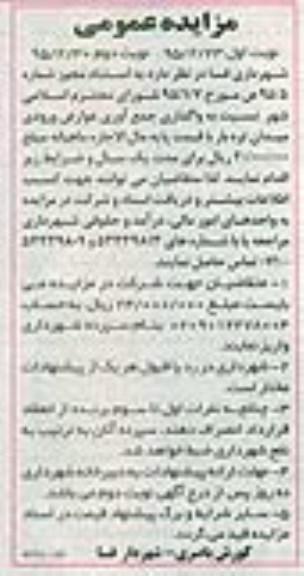 مزایده عمومی
نوبت اول ۹۵/۱۲/۲۳ نوبت دوم ۹۵/۱۲/۳۰
شهرداری فسا در نظر دارد به استناد مجوز شماره
۹۵/۵ ص مورخ ۹۵/۷/۷ شورای محترم اسلامی
شهر نسبت به واگذاری جمع آوری عوارض ورودی
میدان تره بار با قیمت پایه مال الاجاره ماهیانه مبلغ
ریال برای مدت یک سال و شرایط زیر
اقدام نماید. لذا متقاضیان می توانند جهت کسب
اطلاعات بیشتر و دریافت اسناد و شرکت در مزایده
به واحدهای امور مالی، درآمد و حقوقی شهرداری
مراجعه یا با شماره های
تماس حاصل نمایند.
۱- متقاضیان جهت شرکت در مزایده می
بایست مبلغ ریال به حساب
بنام سپرده شهرداری
واریز نمایند.
۲- شهرداری در رد یا قبول هر یک از پیشنهادات
مختار است.
۳- چنانچه نفرات اول تا سوم برنده از انعقاد
قرارداد انصراف دهند، سپرده آنان به ترتیب به
نفع شهرداری ضبط خواهد شد.
۴- مهلت ارائه پیشنهادات به دبیرخانه شهرداری
ده روز پس از درج آگهی نوبت دوم می باشد.
۵- سایر شرایط و برگ پیشنهاد قیمت در اسناد
مزایده قید می گردد.
کورش ناصری - شهردار فسا